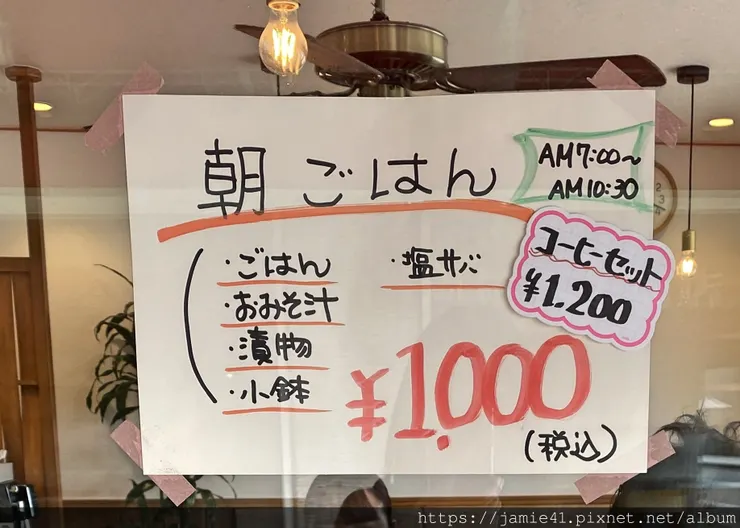 朝ごはん
AM7:00~
AM10:30
・ごはん
・おみそ汁
・漬物
・小鉢
・塩サバ
コーヒーセット
¥1.200
¥1.000
(税込)
https://jamie41.pixnet.net/album